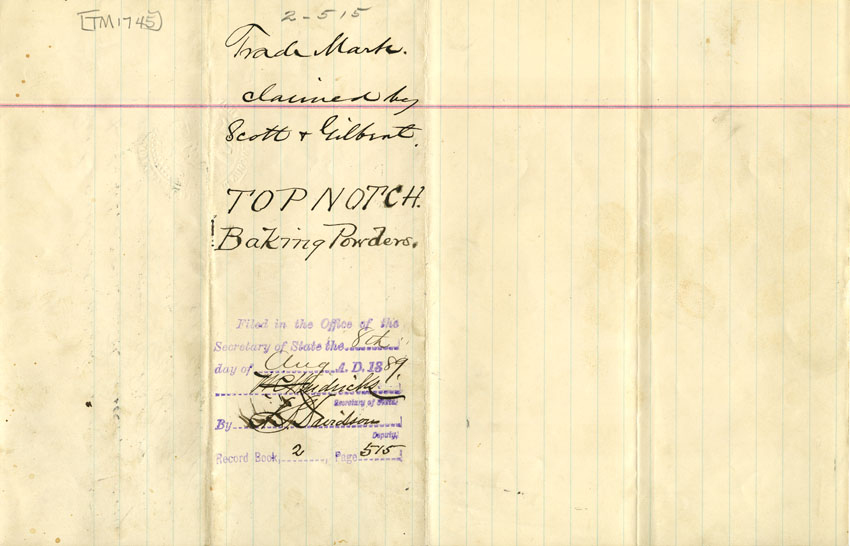 [TM1745]
2-515
Trade Mark.
claimed by
Scott & Gilbert.
TOP NOTCH.
Baking Powders.
Filed in the Office of the
Secretary of State the 8th
day of Aug A. D. 1889.
W C Hendricks
Secretary of State.
By Davidson
Deputy.
Record Book 2, Page 515